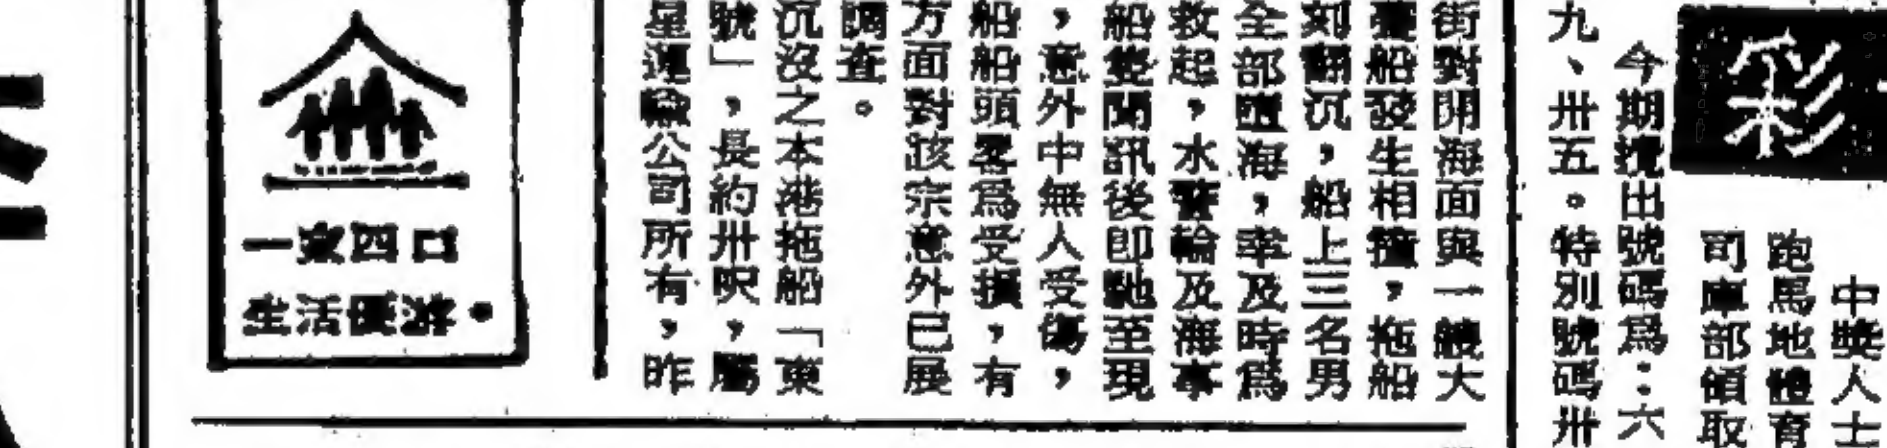 彩
中獎人士
跑馬地體育
司庫部領取
今期攪出號碼為：六
九、卅五。特別號碼卅
街對開海面與一艘大
躉船發生相撞，拖船
刻翻沉，船上三名男
全部墮海，幸及時為
救起，水警輪及海事
船隻聞訊後即馳至現
，意外中無人受傷，
船船頭畧為受損，有
方面對該宗意外已展
調查。
沉沒之本港拖船「東
號」，長約卅呎，屬
星運輸公司所有，昨
一家四口
生活優游。